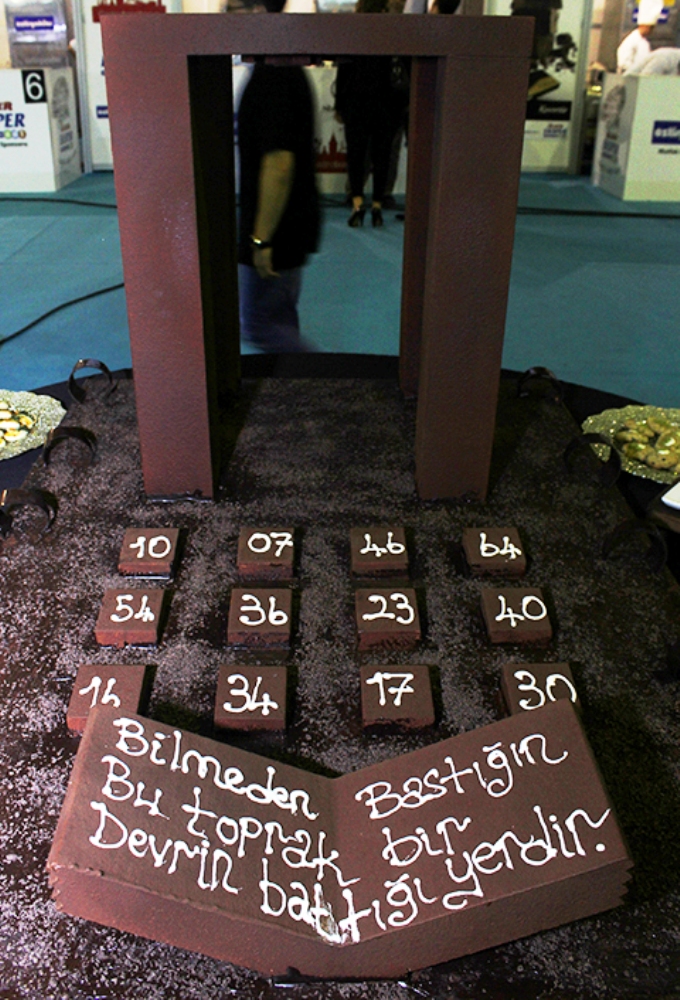 6
PER
10 07 46 64
54 36 23 40
16 34 17 30
Bilmeden Bastığın
Bu toprak bir
Devrin battığı yerdir.